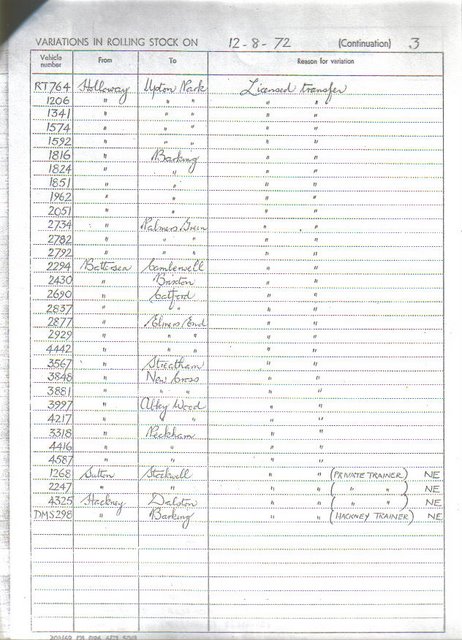 VARIATIONS IN ROLLING STOCK ON 12-8-72 (Continuation) 3
Vehicle number From To Reason for variation
RT764 Holloway Upton Park Licensed transfer
1206 " " " " "
1341 " " " " "
1574 " " " " "
1592 " " " " "
1816 " Barking " "
1824 " " " "
1851 " " " "
1962 " " " "
2051 " " " "
2734 " Palmers Green " "
2782 " " " " "
2792 " " " " "
2294 Battersea Camberwell " "
2430 " Brixton " "
2690 " Catford " "
2837 " " " "
2877 " Elmers End " "
2929 " " " " "
4442 " " " " "
3567 " Streatham " "
3848 " New Cross " "
3881 " " " " "
3997 " Abbey Wood " "
4217 " " " " "
3318 " Peckham " "
4416 " " " "
4587 " " " "
1268 Sutton Stockwell " " (PRIVATE TRAINER) NE
2247 " " " " ( " " ) NE
4325 Hackney Dalston " " ( " " ) NE
DMS298 " Barking " " (HACKNEY TRAINER) NE